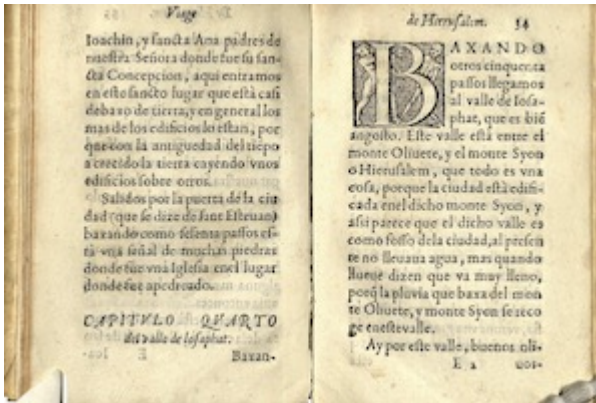 Viage
Ioachin, y sancta Ana padres de
nuestra Señora donde fue su san-
cta Concepcion, aqui entramos
en esto sancto lugar que està casi
debaxo de tierra, y en general los
mas de los edificios lo estan, por
que con la antiguedad del tiẽpo
a crecido la tierra cayendo vnos
edificios sobre otros.
Salidos por la puerta de la ciu
dad (que se dize de sant Esteuan)
baxando como sesenta passos es-
tà vna señal de muchas piedras
donde fue vna Iglesia enel lugar
donde fue apedreado.
CAPITVLO QVARTO
del valle de Iosaphat.
E
Baxan-
de Hierusalem. 34
BAXANDO
otros cinquenta
passos llegamos
al valle de Iosa-
phat, que es biẽ
angosto. Este valle està entre el
monte Oliuete, y el monte Syon
o Hierusalem, que todo es vna
cosa, porque la ciudad està edifi-
cada enel dicho monte Syon, y
assi parece que el dicho valle es
como fosso dela ciudad, al presen
te no lleuaua agua, mas quando
llueue dizen que va muy lleno,
porq̃ la pluvia que baxa del mon
te Oliuete, y monte Syon se reco
ge eneste valle.
Ay por este valle, buenos oli-
E 2
uos-